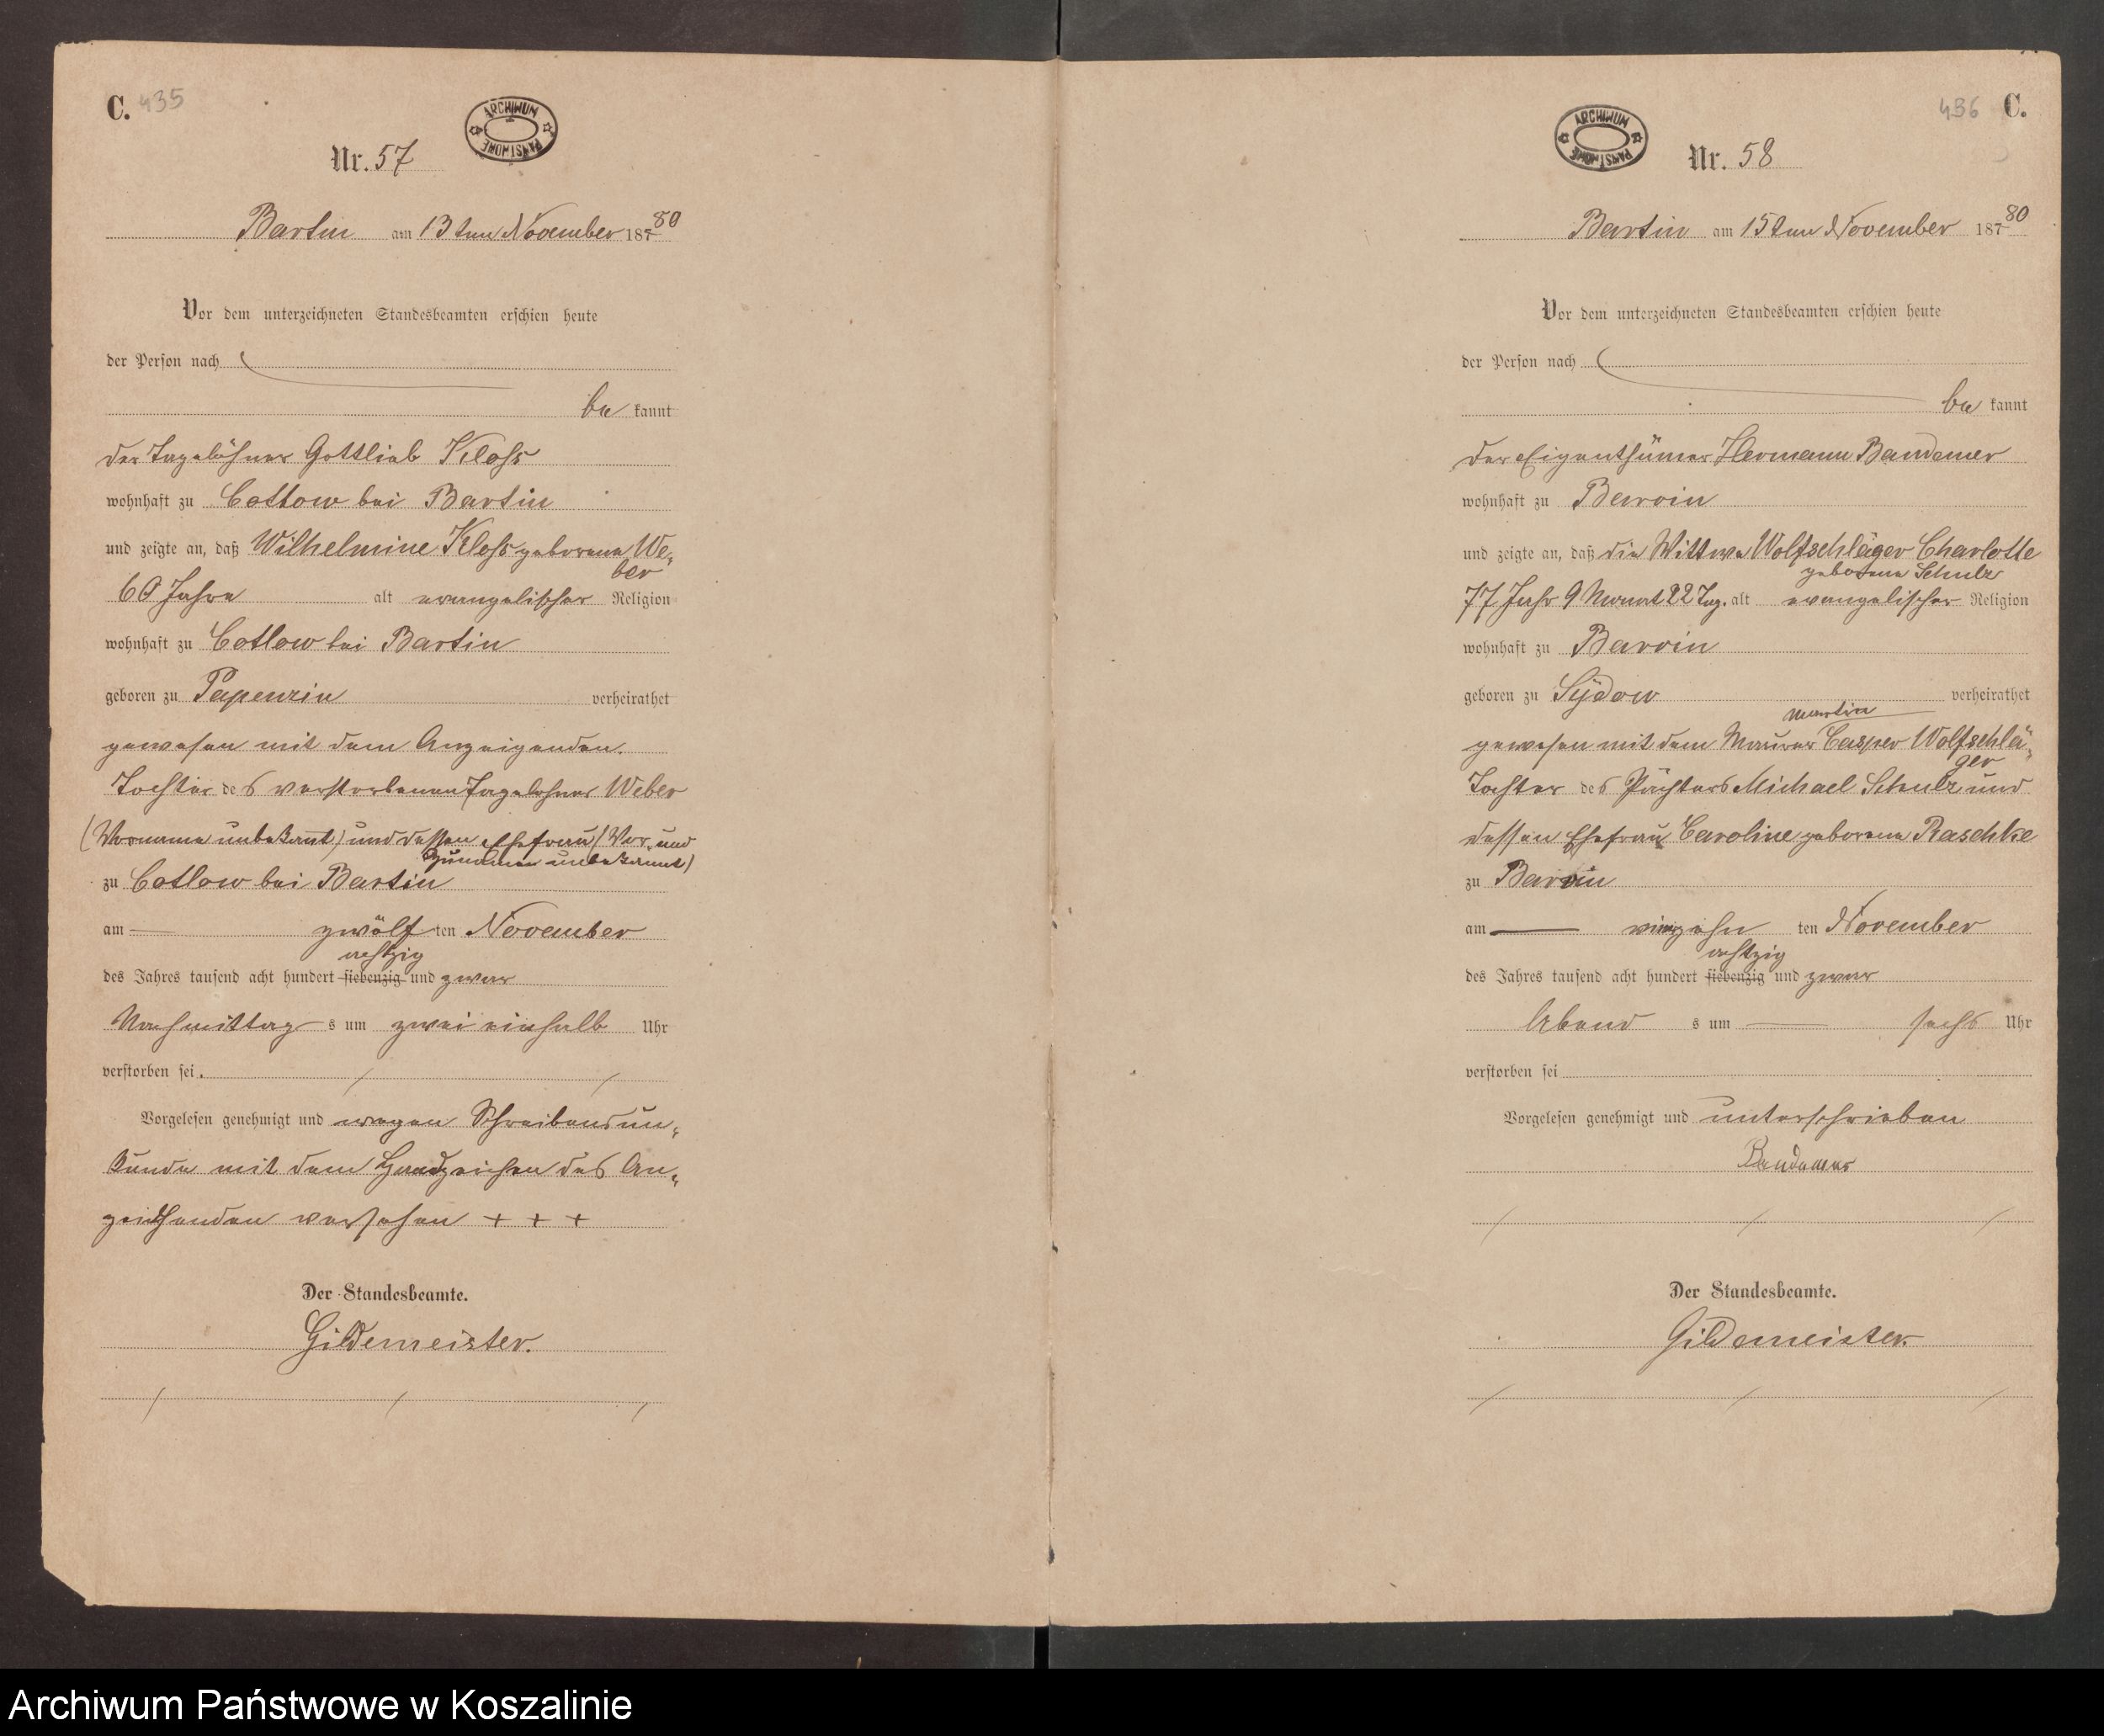 C. 435
ARCHIWUM PAŃSTWOWE
Nr. 57
Bartin am 13ten November 18780
Vor dem unterzeichneten Standesbeamten erschien heute
der Person nach
be kannt
der Tagelöhner Gottlieb Kloss
wohnhaft zu Cottow bei Bartin
und zeigte an, daß Wilhelmine Kloss geborene We-
ber
60 Jahre alt evangelischer Religion
wohnhaft zu Cotlow bei Bartin
geboren zu Papenzin verheirathet
gewesen mit dem Anzeigenden.
Tochter des verstorbenen Tagelöhner Weber
(Vorname unbekannt) und dessen Ehefrau (Vor- und
Zuname unbekannt)
zu Cotlow bei Bartin
am zwölf ten November
achtzig
des Jahres tausend acht hundert siebenzig und zwar
Nachmittag s um zwei einhalb Uhr
verstorben sei.
Vorgelesen genehmigt und wegen Schreibensun-
kunde mit dem Handzeichen des An-
zeichenden versehen + + +
Der Standesbeamte.
Gildemeister.
436 C.
ARCHIWUM PAŃSTWOWE
Nr. 58
Bartin am 15ten November 18780
Vor dem unterzeichneten Standesbeamten erschien heute
der Person nach
be kannt
der Eigenthümer Hermann Bandemer
wohnhaft zu Barvin
und zeigte an, daß die Wittwe Wolfschläger Charlotte
geborene Schulz
77 Jahr 9 Monat 22 Tag. alt evangelischer Religion
wohnhaft zu Barvin
geboren zu Sydow verheirathet
Martin
gewesen mit dem Maurer Casper Wolfschlä-
ger
Tochter des Pächters Michael Schulz und
dessen Ehefrau Caroline geborene Raschke
zu Barvin
am vierzehn ten November
achtzig
des Jahres tausend acht hundert siebenzig und zwar
Abend s um sechs Uhr
verstorben sei
Vorgelesen genehmigt und unterschrieben
Bandemer
Der Standesbeamte.
Gildemeister.
Archiwum Państwowe w Koszalinie